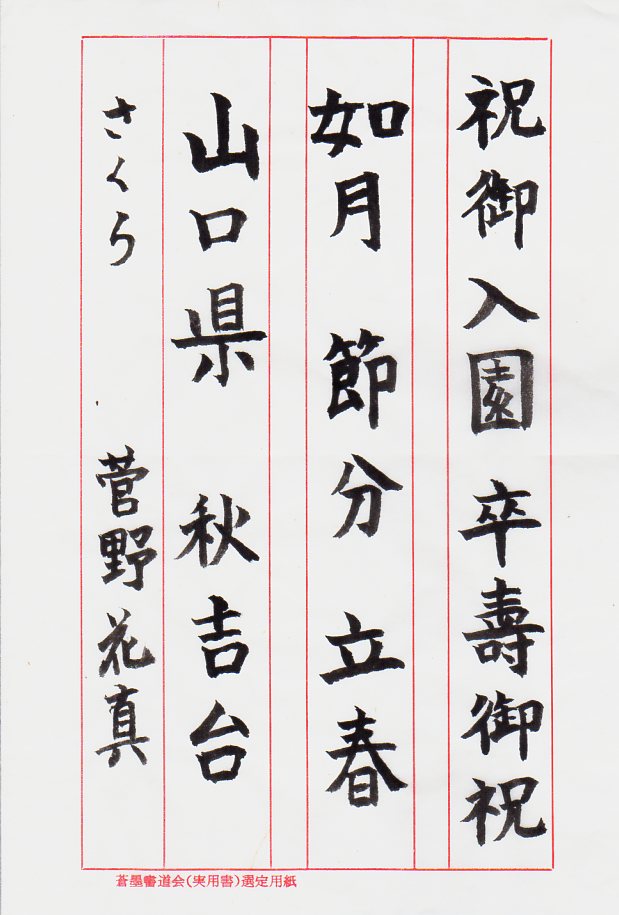 祝御入園 卒壽御祝
如月 節分 立春
山口県 秋吉台
さくら 菅野花真
蒼墨書道会(実用書)選定用紙